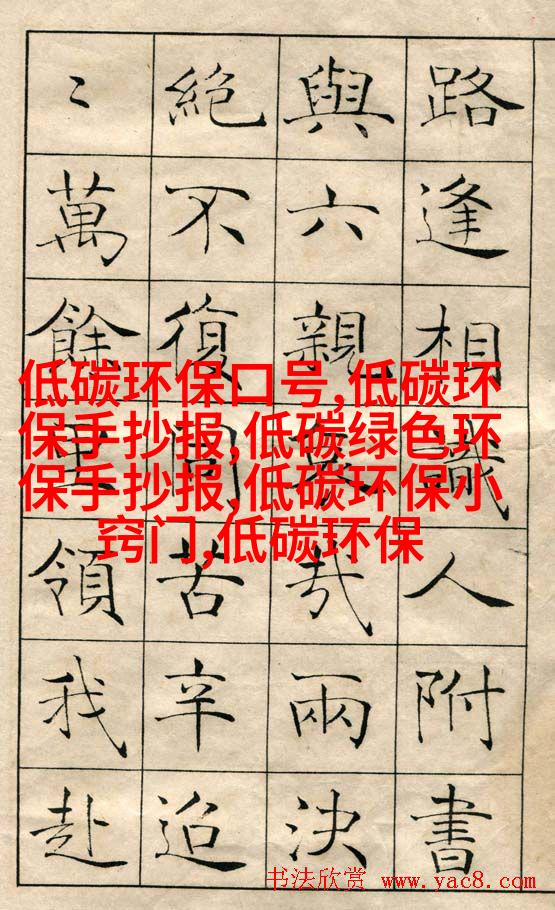 路逢相識人附書
與六親哀哉兩決
絕不復同苦辛迢
〻萬餘里領我赴
低碳环保口号,低碳环
保手抄报,低碳绿色环
保手抄报,低碳环保小
窍门,低碳环保
书法欣赏 www.yac8.com